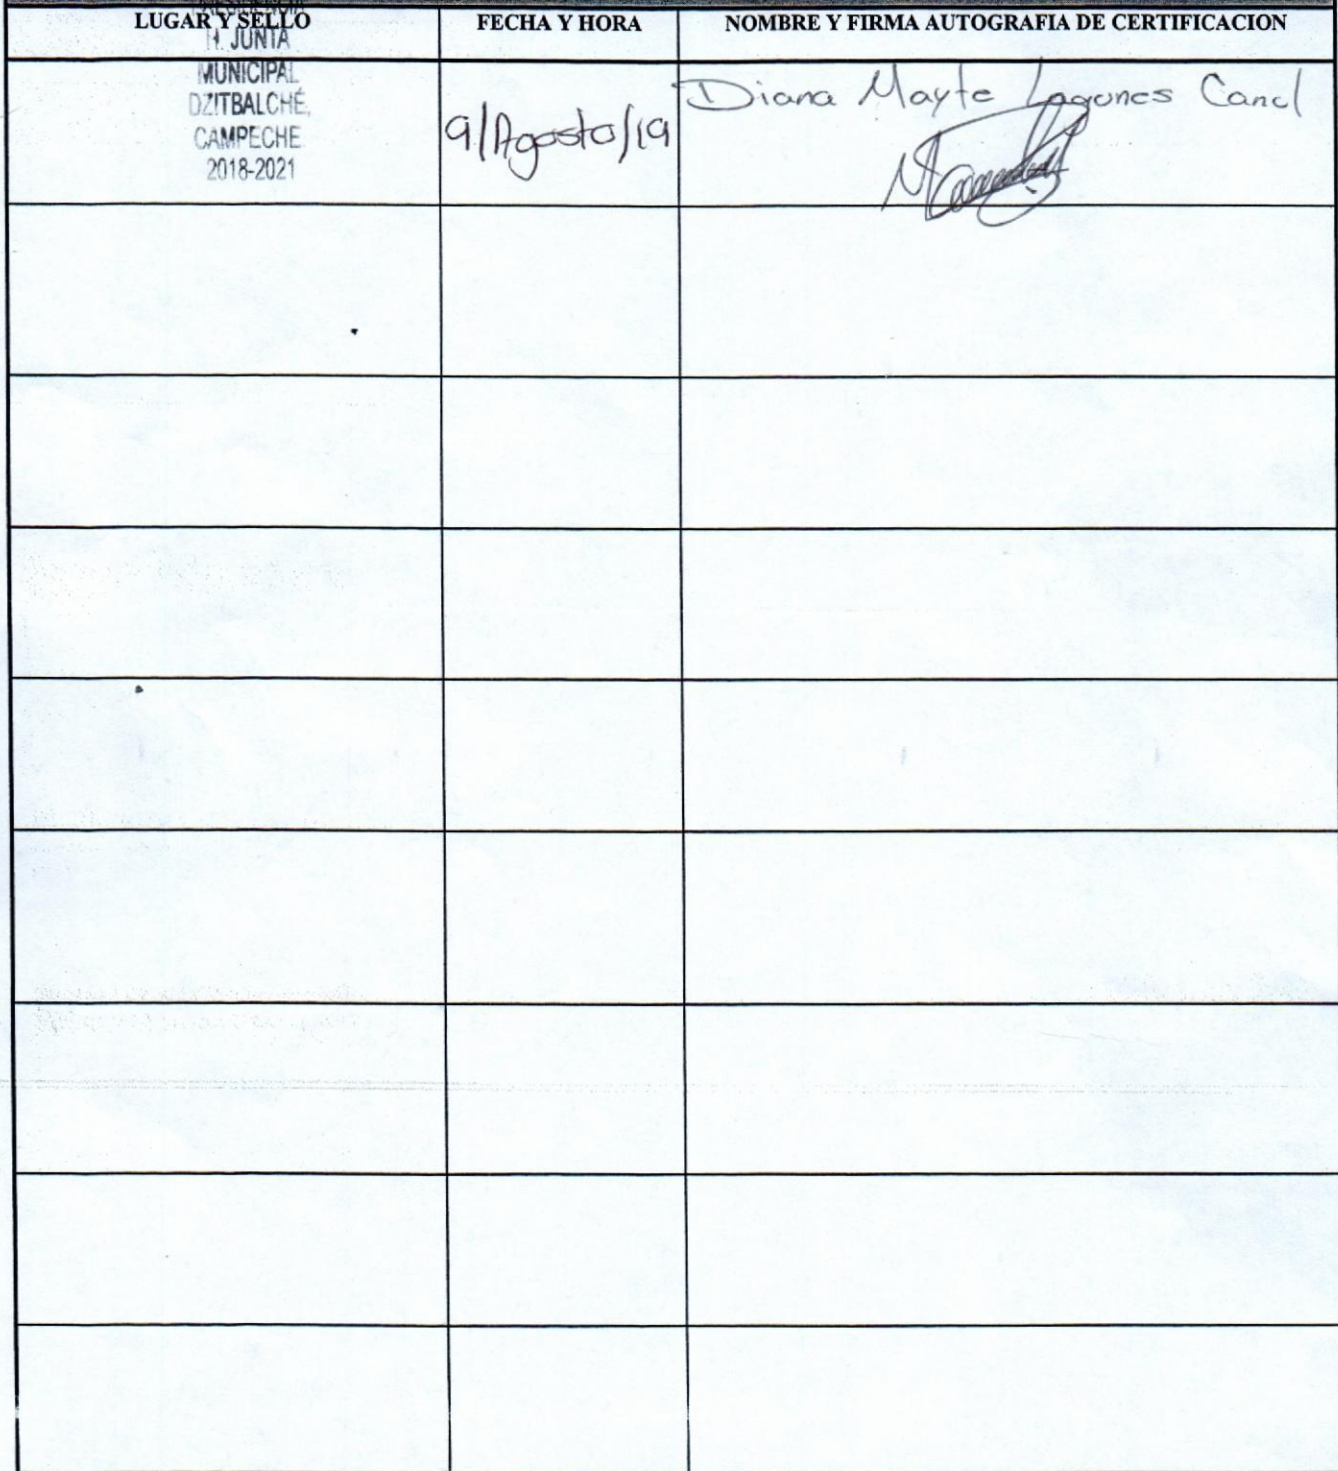 LUGAR Y SELLO FECHA Y HORA NOMBRE Y FIRMA AUTOGRAFIA DE CERTIFICACION
H. JUNTA
MUNICIPAL
DZITBALCHÉ,
CAMPECHE.
2018-2021
9/Agosto/19
Diana Mayte Lagunes Canul